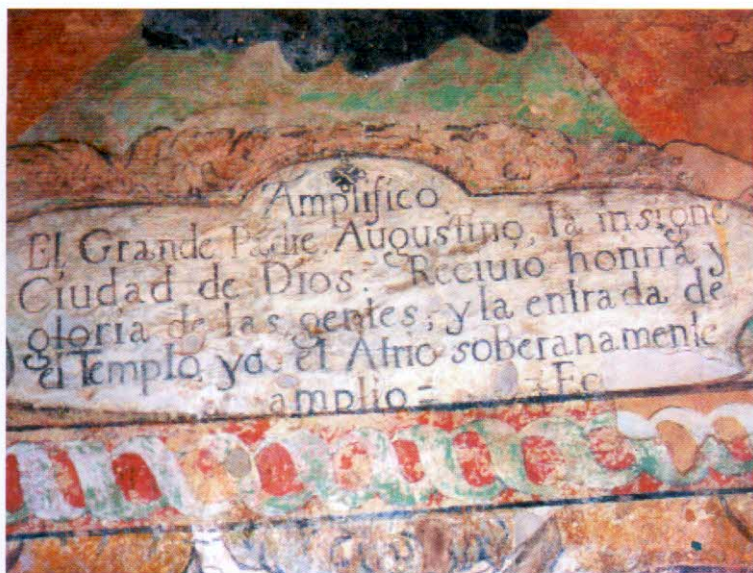 Amplifico
El Grande Padre Augustino, la insigne
Ciudad de Dios: Reciuio honrra y
gloria de las gentes; y la entrada de
el Templo, ya el Atrio soberanamente
amplio =